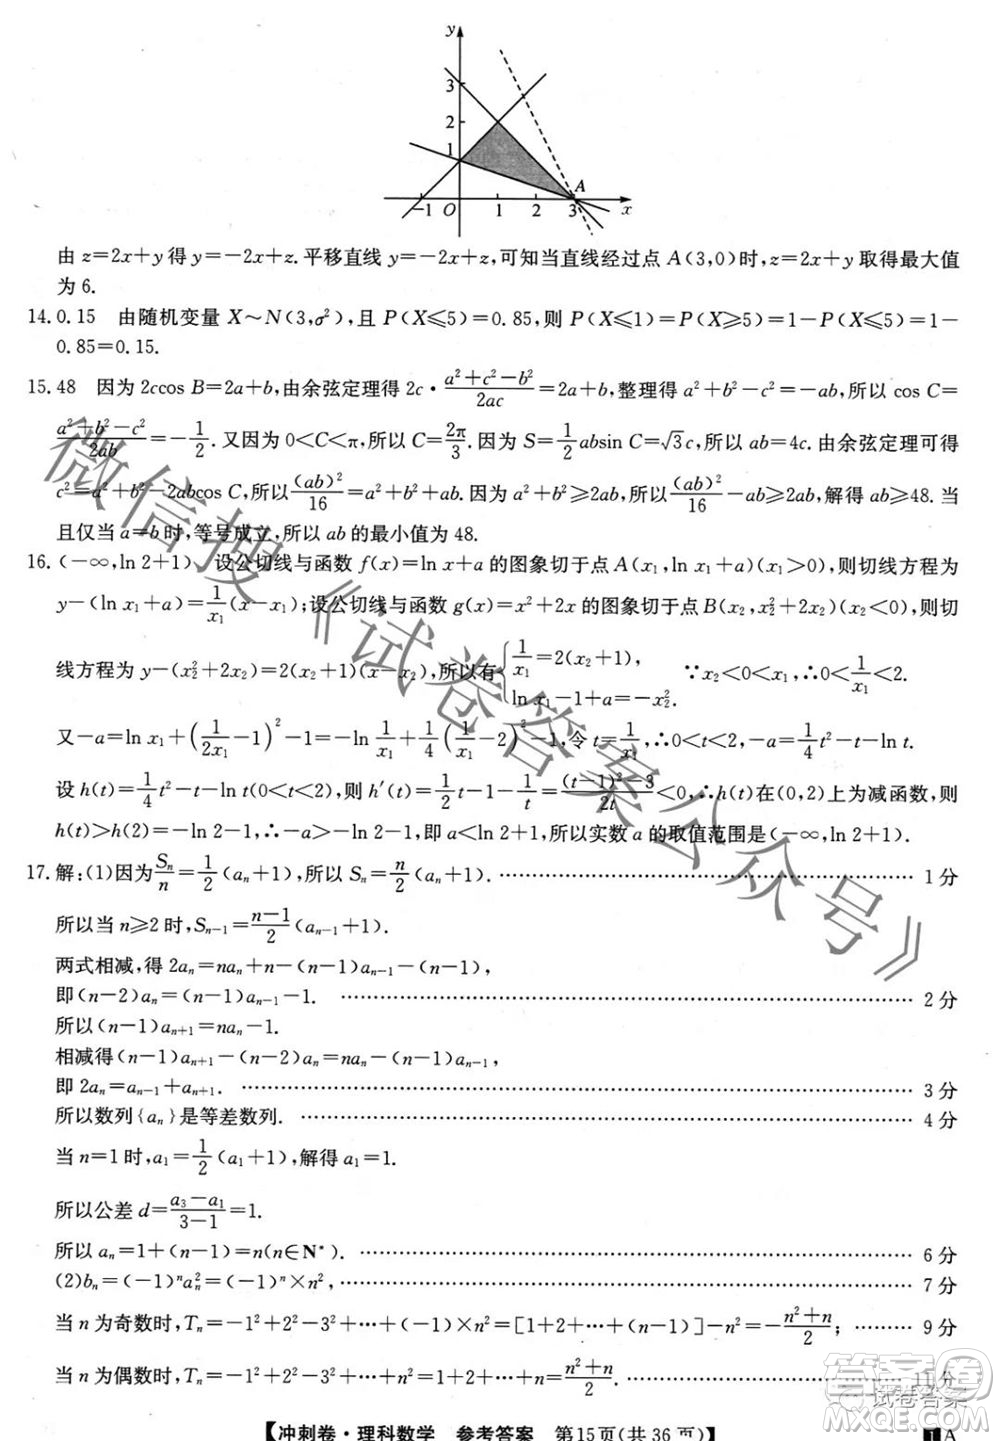 y
3
2
1
A
−1 O 1 2 3 x
由 z=2x+y 得 y=−2x+z.平移直线 y=−2x+z,可知当直线经过点 A(3,0)时,z=2x+y 取得最大值
为 6.
14.0.15 由随机变量 X∼N(3,σ²),且 P(X⩽5)=0.85,则 P(X⩽1)=P(X⩾5)=1−P(X⩽5)=1−
0.85=0.15.
15.48 因为 2ccos B=2a+b,由余弦定理得 2c·(a²+c²−b²)/(2ac)=2a+b,整理得 a²+b²−c²=−ab,所以 cos C=
(a²+b²−c²)/(2ab)=−1/2.又因为 0<C<π,所以 C=2π/3.又因为 S=1/2 absin C=√3c,所以 ab=4c.由余弦定理可得
c²=a²+b²−2abcos C,所以(ab)²/16=a²+b²+ab.又因为 a²+b²⩾2ab,所以(ab)²/16−ab⩾2ab,解得 ab⩾48.当
且仅当 a=b 时,等号成立,所以 ab 的最小值为 48.
16.(−∞,ln 2+1) 设公切线与函数 f(x)=ln x+a 的图象切于点 A(x₁,ln x₁+a)(x₁>0),则切线方程为
y−(ln x₁+a)=1/x₁(x−x₁);设公切线与函数 g(x)=x²+2x 的图象切于点 B(x₂,x₂²+2x₂)(x₂<0),则切
线方程为 y−(x₂²+2x₂)=2(x₂+1)(x−x₂),所以有{1/x₁=2(x₂+1), ln x₁−1+a=−x₂². ∵x₂<0<x₁,∴0<1/x₁<2.
又−a=ln x₁+(1/(2x₁)−1)²−1=−ln 1/x₁+1/4(1/x₁−2)²−1,令 t=1/x₁,∴0<t<2,−a=1/4 t²−t−ln t.
设 h(t)=1/4 t²−t−ln t(0<t<2),则 h′(t)=1/2 t−1−1/t=((t−1)²−3)/(2t)<0,∴h(t)在(0,2)上为减函数,则
h(t)>h(2)=−ln 2−1,∴−a>−ln 2−1,即 a<ln 2+1,所以实数 a 的取值范围是(−∞,ln 2+1).
17.解:(1)因为 Sₙ/n=1/2(aₙ+1),所以 Sₙ=n/2(aₙ+1). …… 1 分
所以当 n⩾2 时,Sₙ₋₁=(n−1)/2(aₙ₋₁+1).
两式相减,得 2aₙ=naₙ+n−(n−1)aₙ₋₁−(n−1),
即(n−2)aₙ=(n−1)aₙ₋₁−1. …… 2 分
所以(n−1)aₙ₊₁=naₙ−1.
相减得(n−1)aₙ₊₁−(n−2)aₙ=naₙ−(n−1)aₙ₋₁,
即 2aₙ=aₙ₋₁+aₙ₊₁. …… 3 分
所以数列{aₙ}是等差数列. …… 4 分
当 n=1 时,a₁=1/2(a₁+1),解得 a₁=1.
所以公差 d=(a₃−a₁)/(3−1)=1.
所以 aₙ=1+(n−1)=n(n∈N*). …… 6 分
(2)bₙ=(−1)ⁿaₙ²=(−1)ⁿ×n², …… 7 分
当 n 为奇数时,Tₙ=−1²+2²−3²+⋯+(−1)×n²=[1+2+⋯+(n−1)]−n²=−(n²+n)/2; …… 9 分
当 n 为偶数时,Tₙ=−1²+2²−3²+⋯+n²=1+2+⋯+n=(n²+n)/2. …… 11 分
【冲刺卷·理科数学 参考答案 第15页(共 36 页)】 1 A
微信搜《试卷答案公众号》
答案圈
试卷答案
MXQE.COM